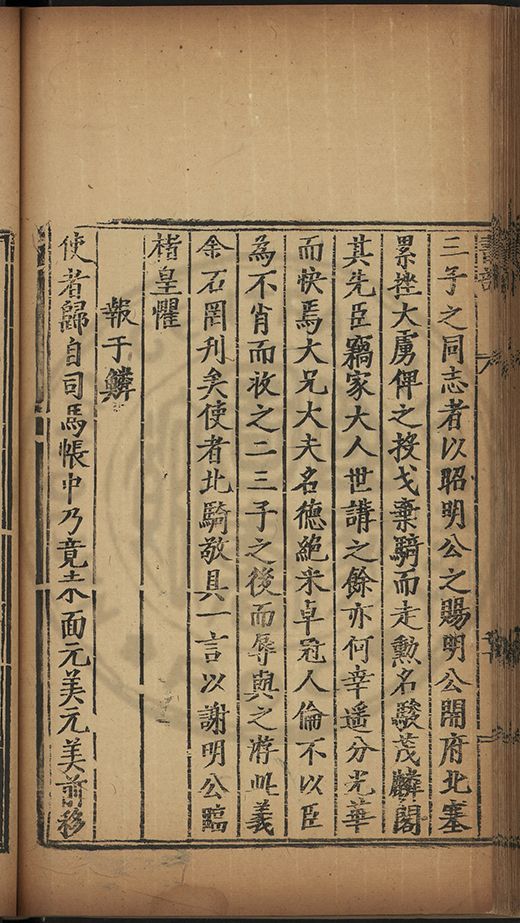 三子之同志者以昭明公之賜明公開府北塞
累挫大虜俾之投戈棄騎而走勲名駿茂麟閣
其先臣竊家大人世講之餘亦何幸遥分光華
而快焉大兄大夫名德絶米卓冠人倫不以臣
為不肖而收之二三子之後而辱與之游此義
余石罔刋矣使者北騎敬具一言以謝明公臨
楮皇懼
報于鱗
使者歸自司馬帳中乃竟未面元美元美前移